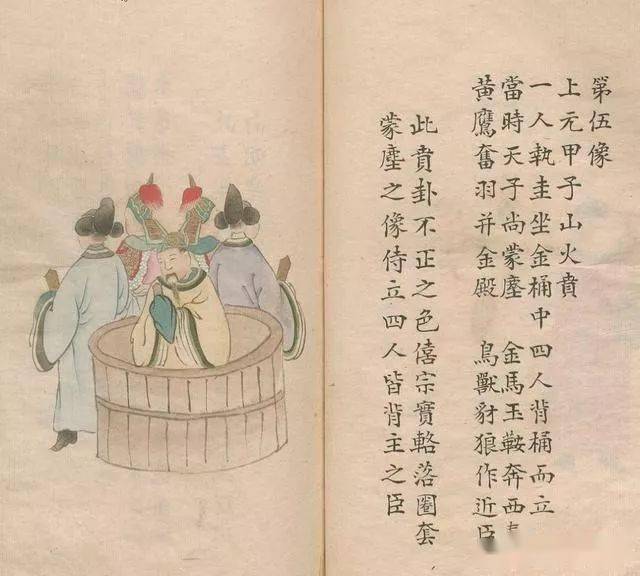 第伍像
上元甲子山火賁
一人執圭坐金桶中四人背桶而立
當時天子尚蒙塵 金馬玉鞍奔西
黃鷹奮羽并金殿 鳥獸豺狼作近臣
此賁卦不正之色僖宗實輅落圈套
蒙塵之像侍立四人皆背主之臣